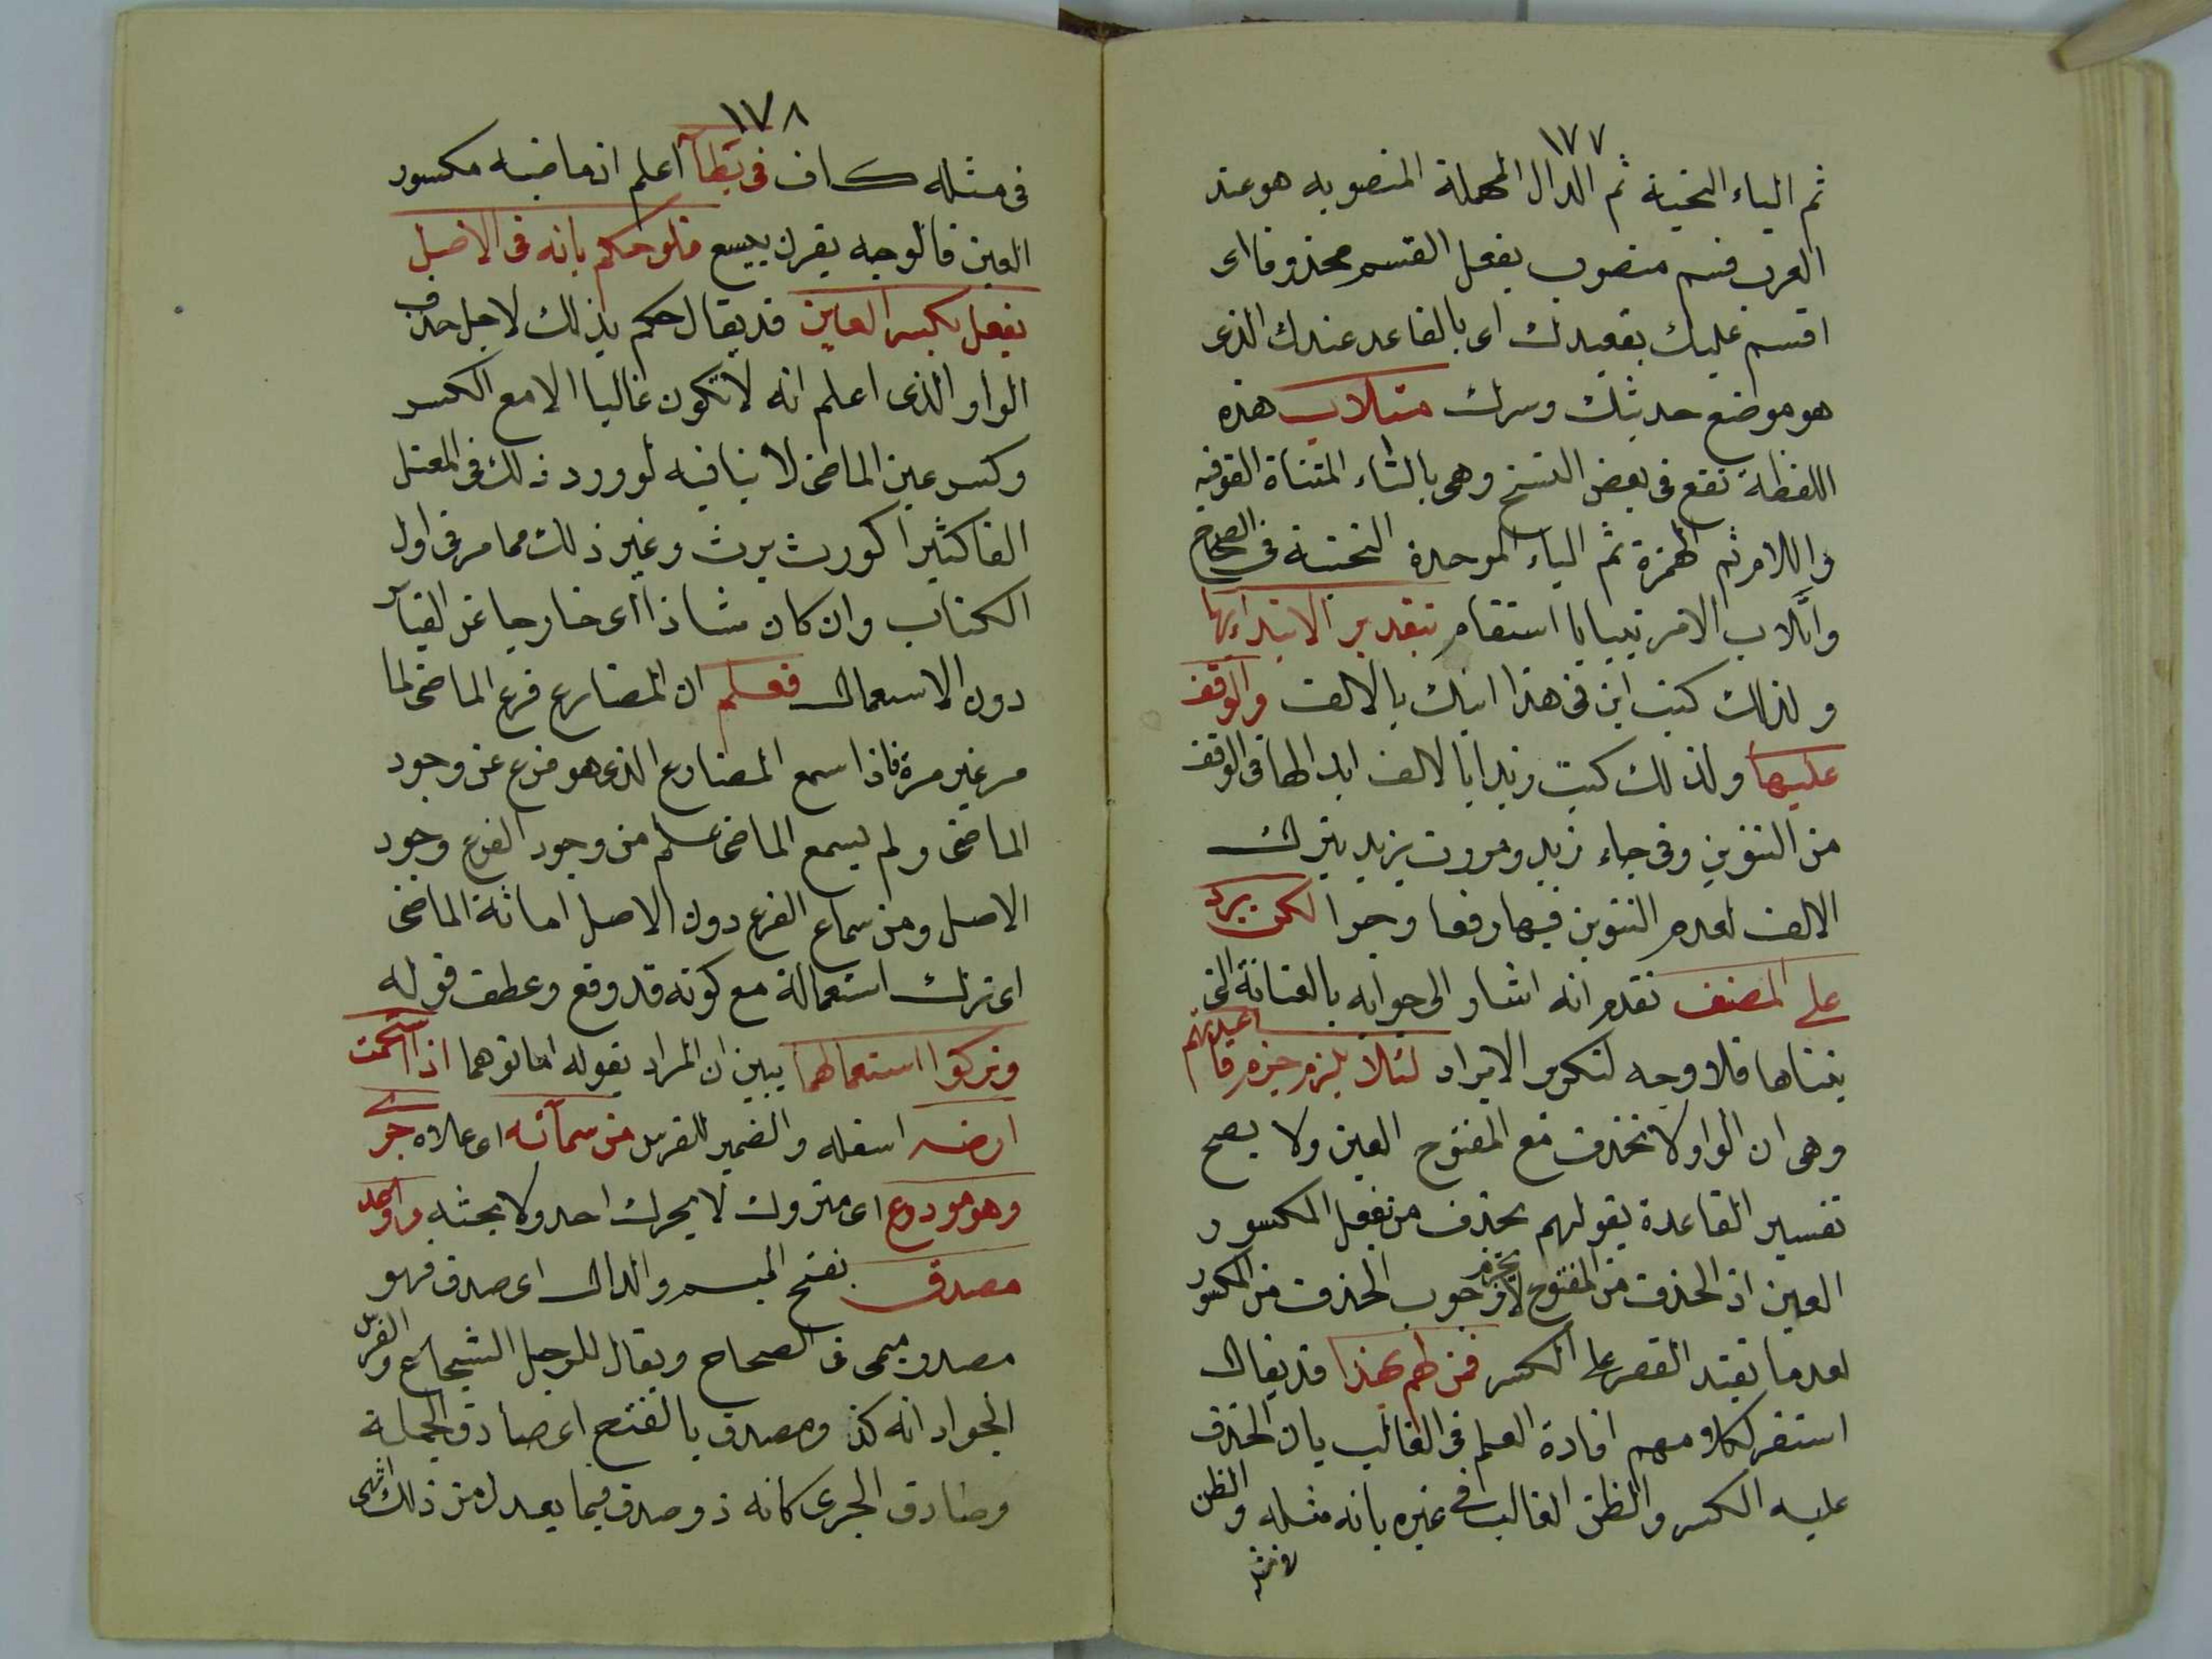 ١٧٧
ثم الياء التحتية ثم الدال المهملة المنصوبه هو عند
العرب قسم منصوب بفعل القسم محذوفا اى
اقسم عليك بقعيدك اى بالقاعد عندك الذى
هو موضع حديثك وسرك متلاب هذه
اللفظة تقع فى بعض النسخ وهى بالتاء المثناة الفوقيه
واللام ثم الهمزة ثم الباء الموحدة التحتية فى الصحاح
واتلاب الامر تيبابا استقام بتقدير الابتداء بها
ولذلك كتبت ابن فى هذا ابنك بالالف والوقف
عليها ولذلك كتبت زيدا بالالف ابدالها فى الوقف
من التنوين وفى جاء زيد ومررت بزيد بترك
الالف لعدم التنوين فيها رفعا وجرا لكن يرد
على المصنف تقدم انه اشار الى جوابه بالعناية التى
بيناها فلا وجه لتكرر الايراد لئلا يلزم خرم قاعدتهم
وهى ان الواو لا تحذف مع المفتوح العين ولا يصح
تفسير القاعدة بقولهم تحذف من يفعل المكسور
العين اذ الحذف من المفتوح لا يخرم وجوب الحذف من المكسور
لعدم ما يفيد القصر على الكسر فمن لهم بهذا قد يقال
استقر كلامهم افادة العلم فى الغالب بان الحذف
عليه الكسر والظن الغالب فى غيره بانه مثله والظن
فى مثله
١٧٨
فى مثله كاف فى يطأ اعلم ان ماضيه مكسور
العين فالوجه يقرن بيسع فلو حكم بانه فى الاصل
يفعل بكسر العين قد يقال حكم بذلك لاجل حذف
الواو الذى اعلم انه لا تكون غالبا الا مع الكسر
وكسر عين الماضى لا ينافيه لورود ذلك فى المعتل
الفا كثيرا كورث يرث وغير ذلك مما مر فى اول
الكتاب وان كان شاذا اى خارجا عن القياس
دون الاستعمال فعلم ان المضارع فرع الماضى لما
مر غير مرة فاذا سمع المضارع الذى هو فرع عن وجود
الماضى ولم يسمع الماضى علم من وجود الفرع وجود
الاصل ومن سماع الفرع دون الاصل اماتة الماضى
اى ترك استعماله مع كونه قد وقع وعطف قوله
وتركوا استعمالهما يبين ان المراد بقوله اماتوهما اذا استحمت
ارضه اسفله والضمير للفرس من سمائه اى علاه جرى
وهو مودوع اى متروك لا يحرك احد ولا يحثه وواعد
مصدق بفتح الميم والدال اى صدق فهو
مصدر ميمى فى الصحاح ويقال للرجل الشجاع والفرس
الجواد انه لذو مصدق بالفتح اى صادق الحملة
وصادق الجرى كانه ذو صدق فيما يعدك من ذلك انتهى